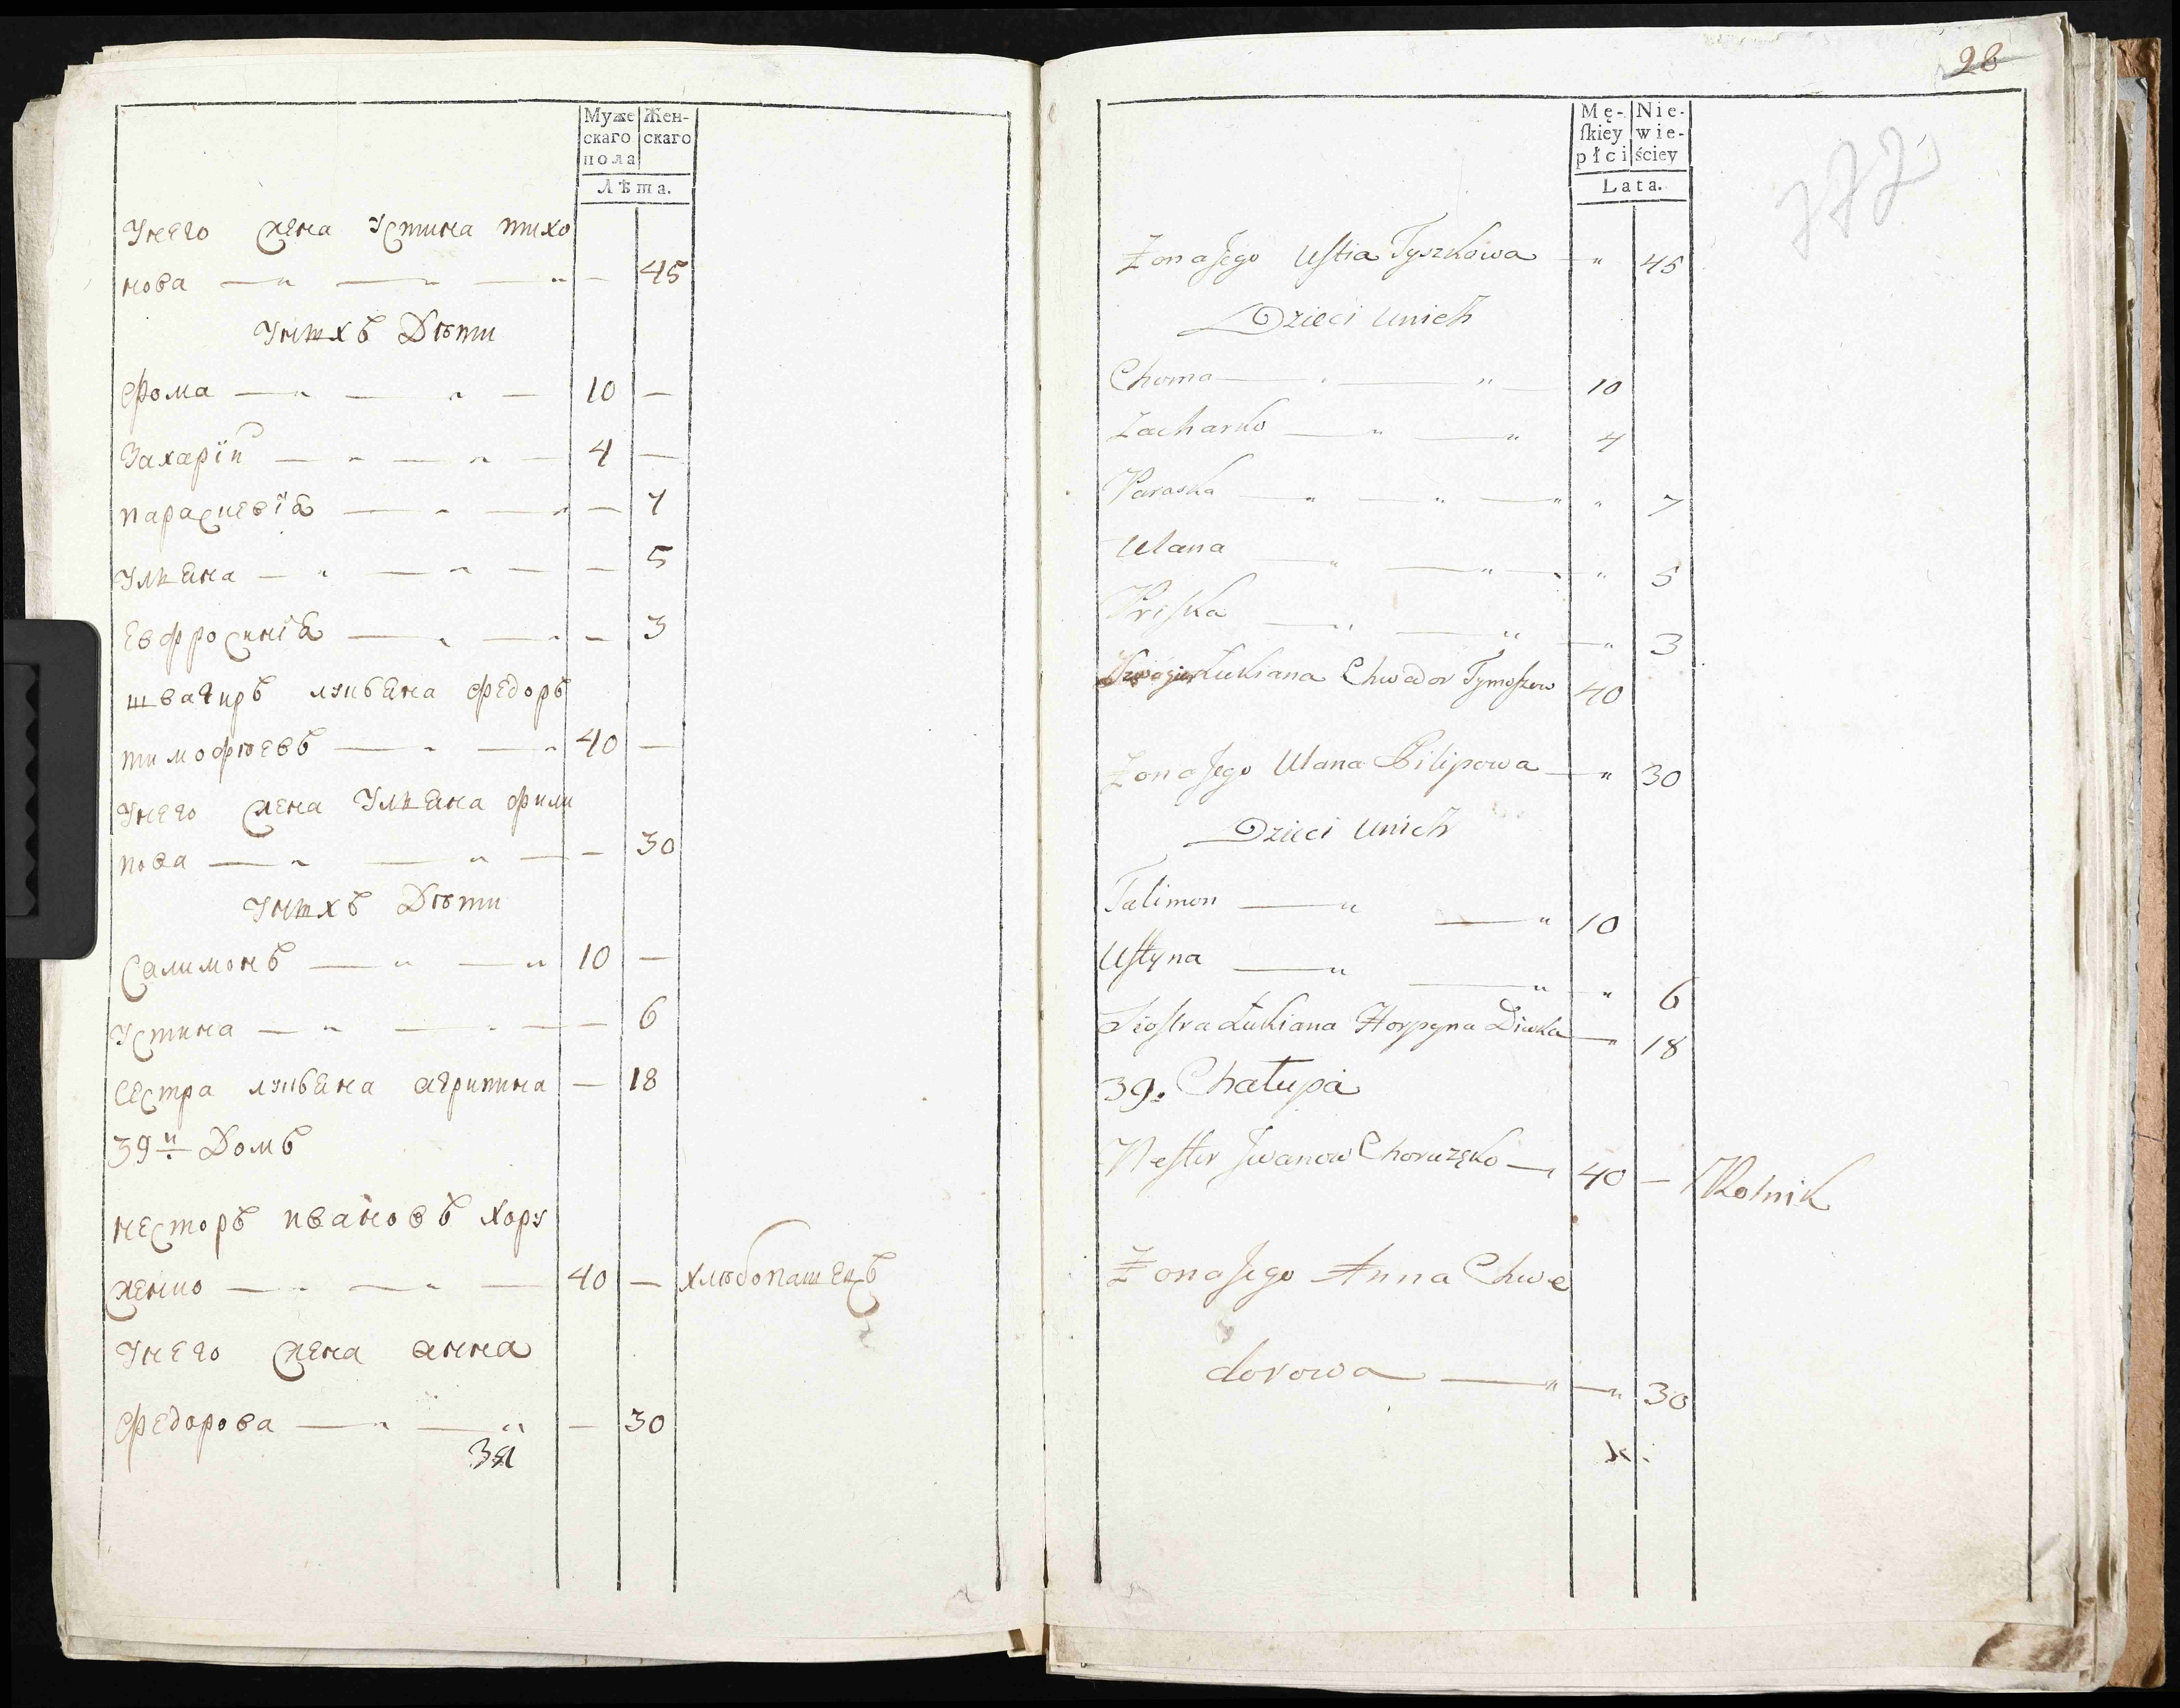 Муже
скаго
пола
Жен-
скаго
Лѣта.
Унего жена Устина тихо
нова — „ — „ — „ — 45
Унихъ Дѣти
Фома — „ — „ — 10 —
Захарїи — „ — „ — 4 —
параскевїя — „ — „ — 7
Ульяна — „ — „ — — 5
Евфросинїя — „ — „ — 3
швагиръ лукьяна Федоръ
тимофѣевъ — „ — „ 40 —
Унего жена Ульяна фили
пова — „ — „ — — 30
Унихъ Дѣти
Салимонъ — „ — „ 10 —
Устина — „ — „ — — 6
сестра лукьяна агрипина — 18
39й Домъ
несторъ ивановъ хору
женко — „ — „ — 40 — хлѣбопашецъ
Унего жена анна
Федорова — „ — „ — 30
28
Mę-
ſkiey
płci
Nie-
wie-
ściey
Lata.
377
Żona Jego Uſtia Tyszkowa — „ 45
Dzieci unich
Choma — „ — „ — 10
Zacharko — „ — „ 4
Paraska — „ — „ — „ „ 7
Ulana — „ — „ — „ „ 5
Priſka — „ — „ — „ 3
Szwagier Łukiana Chwedor Tymoſzow 40
Żona Jego Ulana Pilipowa — „ 30
Dzieci unich
Talimon — „ — „ 10
Uſtyna — „ — „ „ 6
Sioſtra Łukiana Horpyna Diwka — „ 18
39. Chałupa
Neſter Jwanow Chorużęko — „ 40 — Rolnik
Żona Jego Anna Chwe
dorowa — „ — „ 30